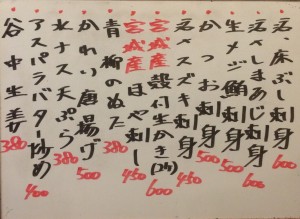 活、床ぶし刺身 600
活さしまあじ刺身 600
生メジ鮪刺身 500
かつお 刺身 500
活スズキ刺身 450
宮城産 殻付生かき(2ヶ) 600
宮城産 ほや刺し 450
青柳のぬた 380
かれい唐揚げ 500
水ナス天ぷら 380
アスパラバター炒め 400
谷中生姜 380